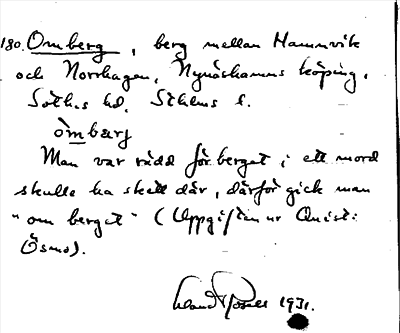 180. Omberg, berg mellan Hamnvik
och Norrhagen, Nynäshamns köping,
Soth.s hd, Sthlms l.
ómbærj
Man var rädd för berget; ett mord
skulle ha skett där, därför gick man
"om berget" (Uppgiften ur Qvist:
Ösmo).
1931.